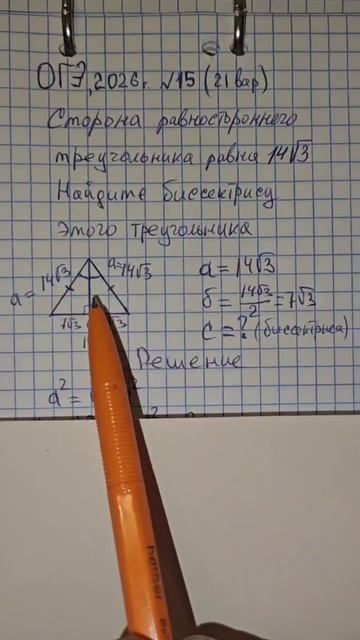 ОГЭ, 2026г. №15 (21 вар)
Сторона равностороннего
треугольника равна 14√3
Найдите биссектрису
этого треугольника
14√3 a=14√3 a = 14√3
a = б = 14√3/2 = 7√3
7√3 √3 c = ? (биссектриса)
Решение
a² =